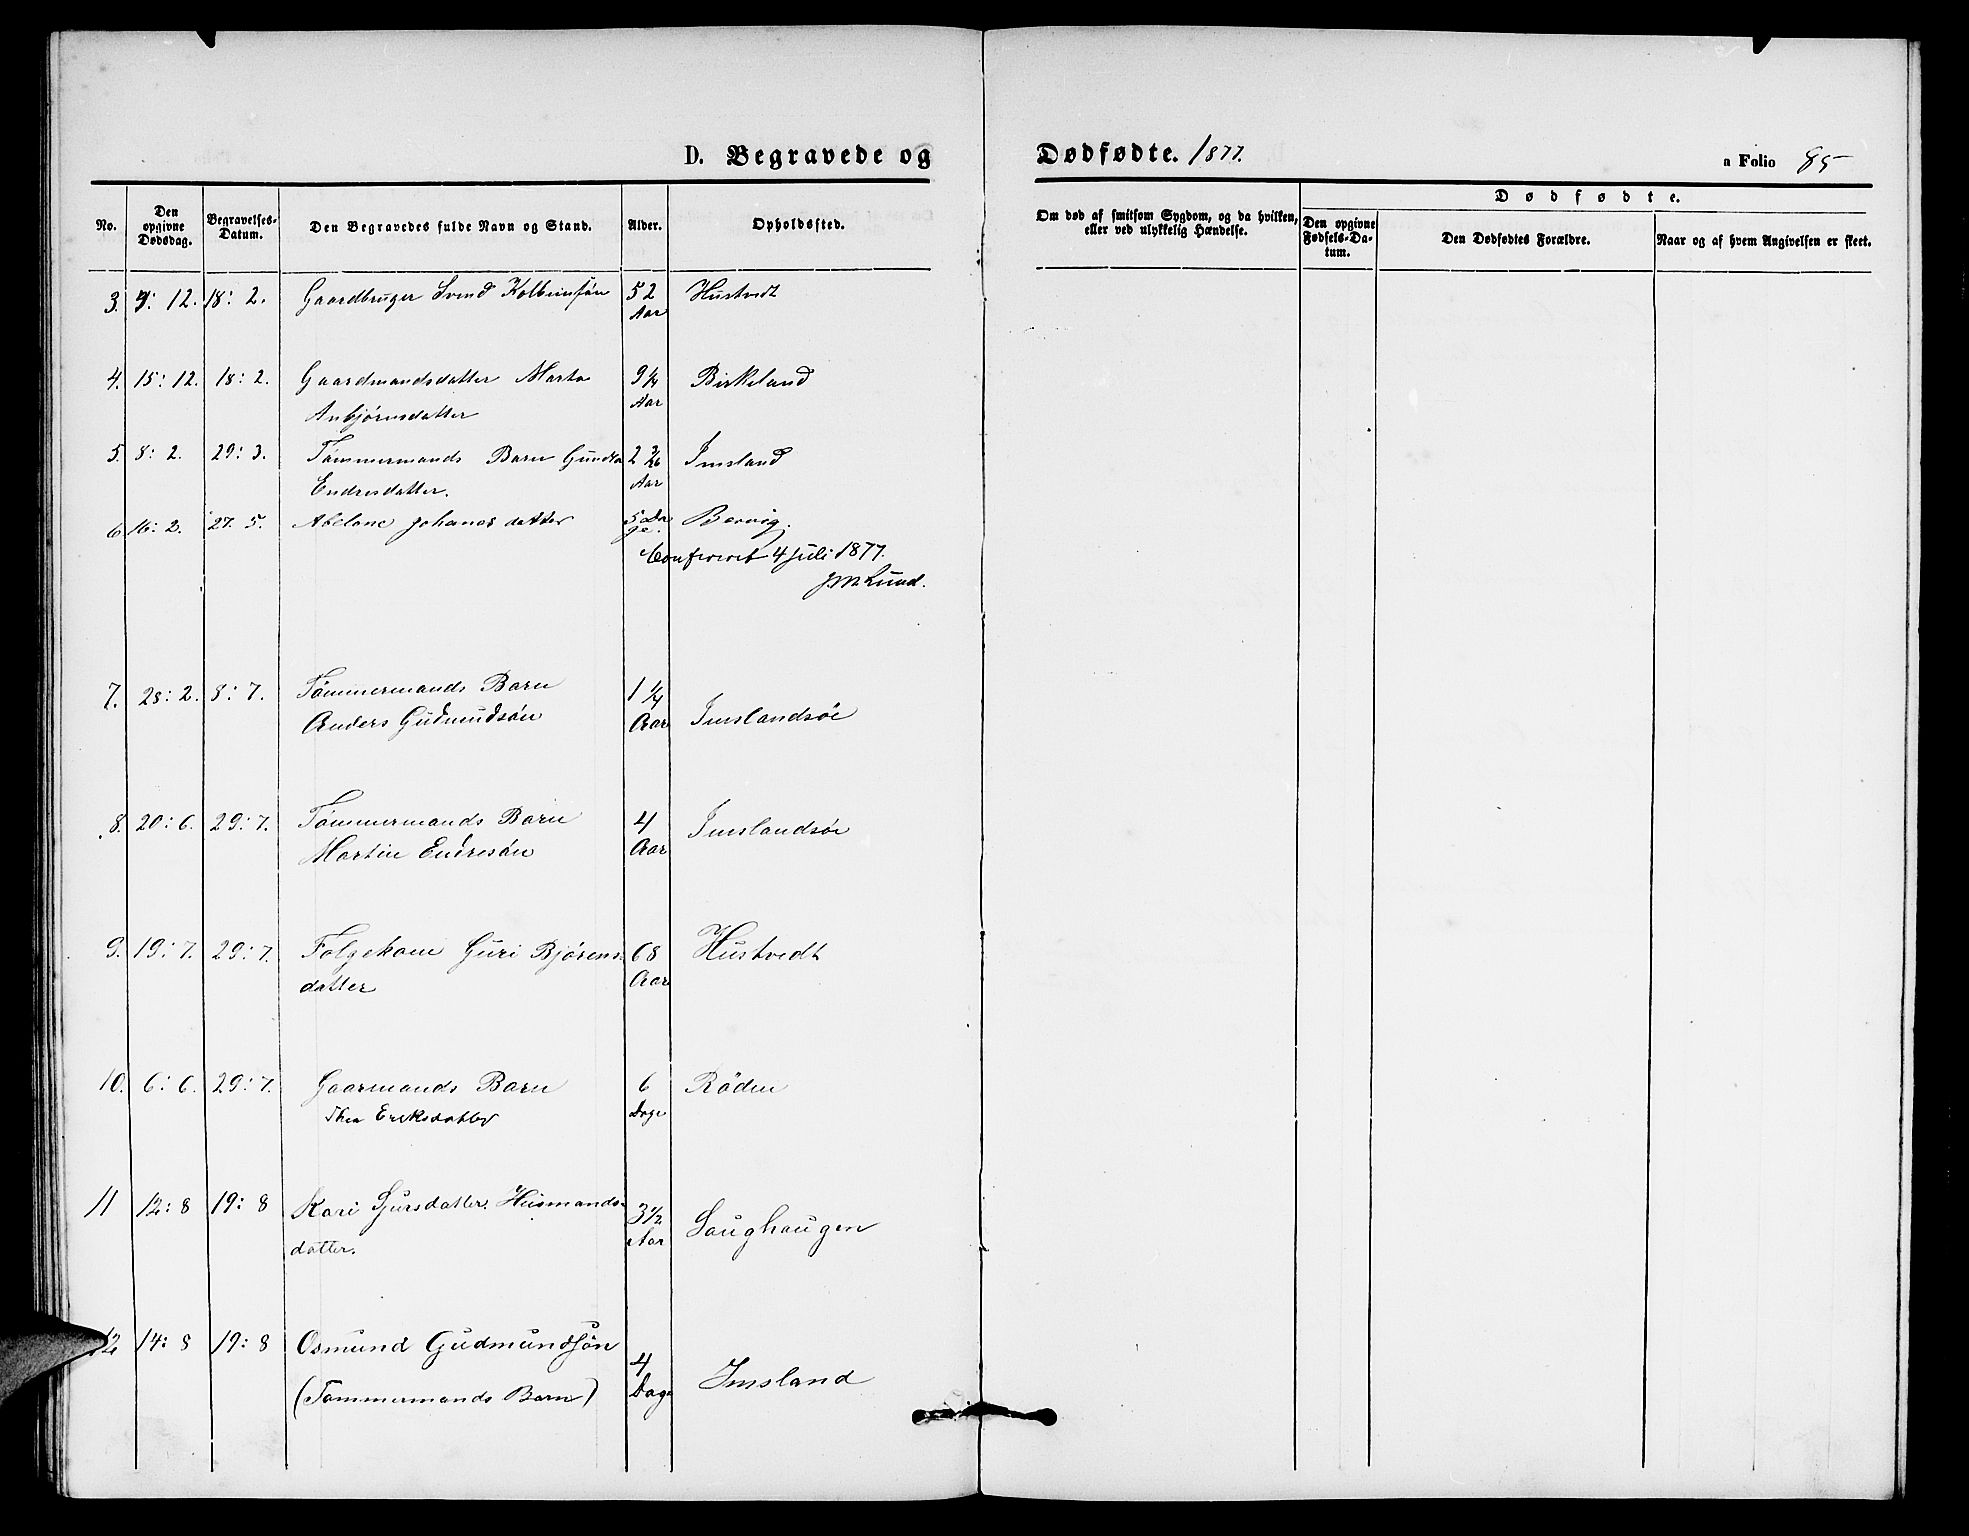 D. Begravede og Dødfødte. 1877.
a Folio 85
No.
Den opgivne Dødsdag.
Begravelses-Datum.
Den Begravedes fulde Navn og Stand.
Alder.
Opholdssted.
Om død af smitsom Sygdom, og da hvilken,
eller ved ulykkelig Hændelse.
Dødfødte.
Den opgivne Fødsels-Datum.
Den Dødfødtes Forældre.
Naar og af hvem Angivelsen er skeet.
3. 12. 18: 2. Gaardbruger Svend Kolbeinsøn 52 Hustvedt
Aar
4. 15: 12. 18: 2. Gaardmandsdatter Marta 9 1/4 Birkeland
Anbjørnsdatter Aar
5. 8: 2. 29: 3. Tømmermands Barn Gundla 2 Imsland
Endresdatter. Aar
6 16: 2. 27. 5. Abelone Johanesdatter 5 Da Bervig.
ge.
Confereret 4 Juli 1877.
JMLund.
7. 28: 2. 8: 7. Tømmermands Barn 1 1/4
Anders Gudmundsøn Aar Imslandsøe
8. 20: 6. 29: 7. Tømmermands Barn 4 Imslandsøe
Martin Endresøn Aar
9. 19: 7. 29: 7. Følgekone Guri Bjørens 68 Hustvedt
datter Aar
10. 6: 6. 29: 7. Gaarmands Barn 6 Røden
Thea Eriksdatter Dage
11 12: 8 19: 8 Kari Sjursdatter. Husmands- 3 1/2 Saughaugen
datter. Aar
12 14: 8 19: 8 Osmund Gudmundsøn 4 Imsland
(Tømmermands Barn) Dage